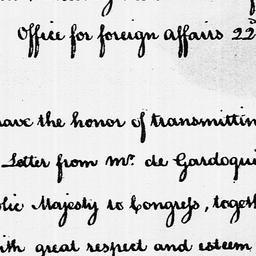 Office for foreign Affairs 22d
have the honor of transmittin
Letter from Mr. de Gardoqui
olic Majesty to Congreſs, togeth
ith great respect and esteem